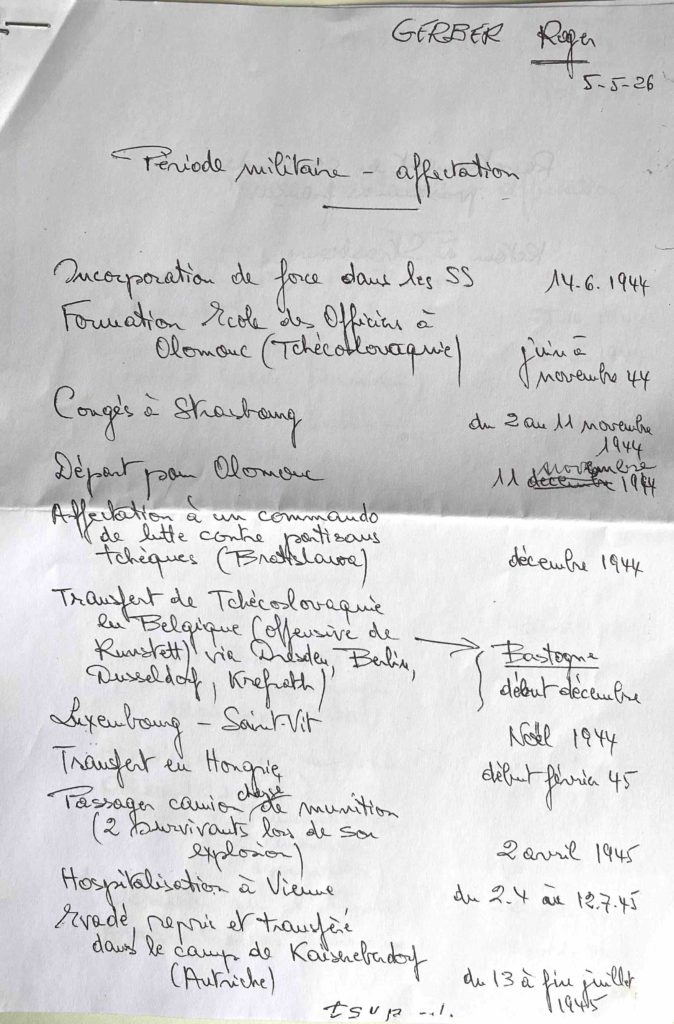 GERBER Roger
5-5-26
Période militaire - affectation
Incorporation de force dans les SS 14.6.1944
Formation Ecole des Officiers à
Olomouc (Tchécoslovaquie) juin à
novembre 44
Congés à Strasbourg du 2 au 11 novembre
1944
Départ pour Olomouc 11 decembre novembre 1944
Affectation à un commando
de lutte contre partisans
tchèques (Bratislawa) décembre 1944
Transfert de Tchécoslovaquie
en Belgique (offensive de
Runstett) via Dresden, Berlin, Bastogne
Dusseldorf, Krefrath) début décembre
Luxembourg - Saint-Vit Noël 1944
Transfert en Hongrie début février 45
Passager camion chargé de munition
(2 survivants lors de son
explosion) 2 avril 1945
Hospitalisation à Vienne du 2.4 au 12.7.45
Evadé, repris et transféré
dans le camp de Kaiserebersdorf
(Autriche) du 13 à fin juillet
1945
tsvp ...